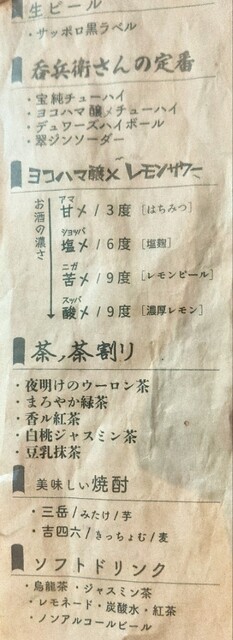 生ビール
・サッポロ黒ラベル
呑兵衛さんの定番
・宝純チューハイ
・ヨコハマ醸〆チューハイ
・デュワーズハイボール
・翠ジンソーダー
ヨコハマ醸〆レモンサワー
お酒の濃さ
アマ
甘〆/3度 [はちみつ]
ショッパ
塩〆/6度 [塩麹]
ニガ
苦〆/9度 [レモンピール]
スッパ
酸〆/9度 [濃厚レモン]
茶ノ茶割り
・夜明けのウーロン茶
・まろやか緑茶
・香ル紅茶
・白桃ジャスミン茶
・豆乳抹茶
美味しい焼酎
・三岳/みたけ/芋
・吉四六/きっちょむ/麦
ソフトドリンク
・烏龍茶・ジャスミン茶
・レモネード・炭酸水・紅茶
・ノンアルコールビール